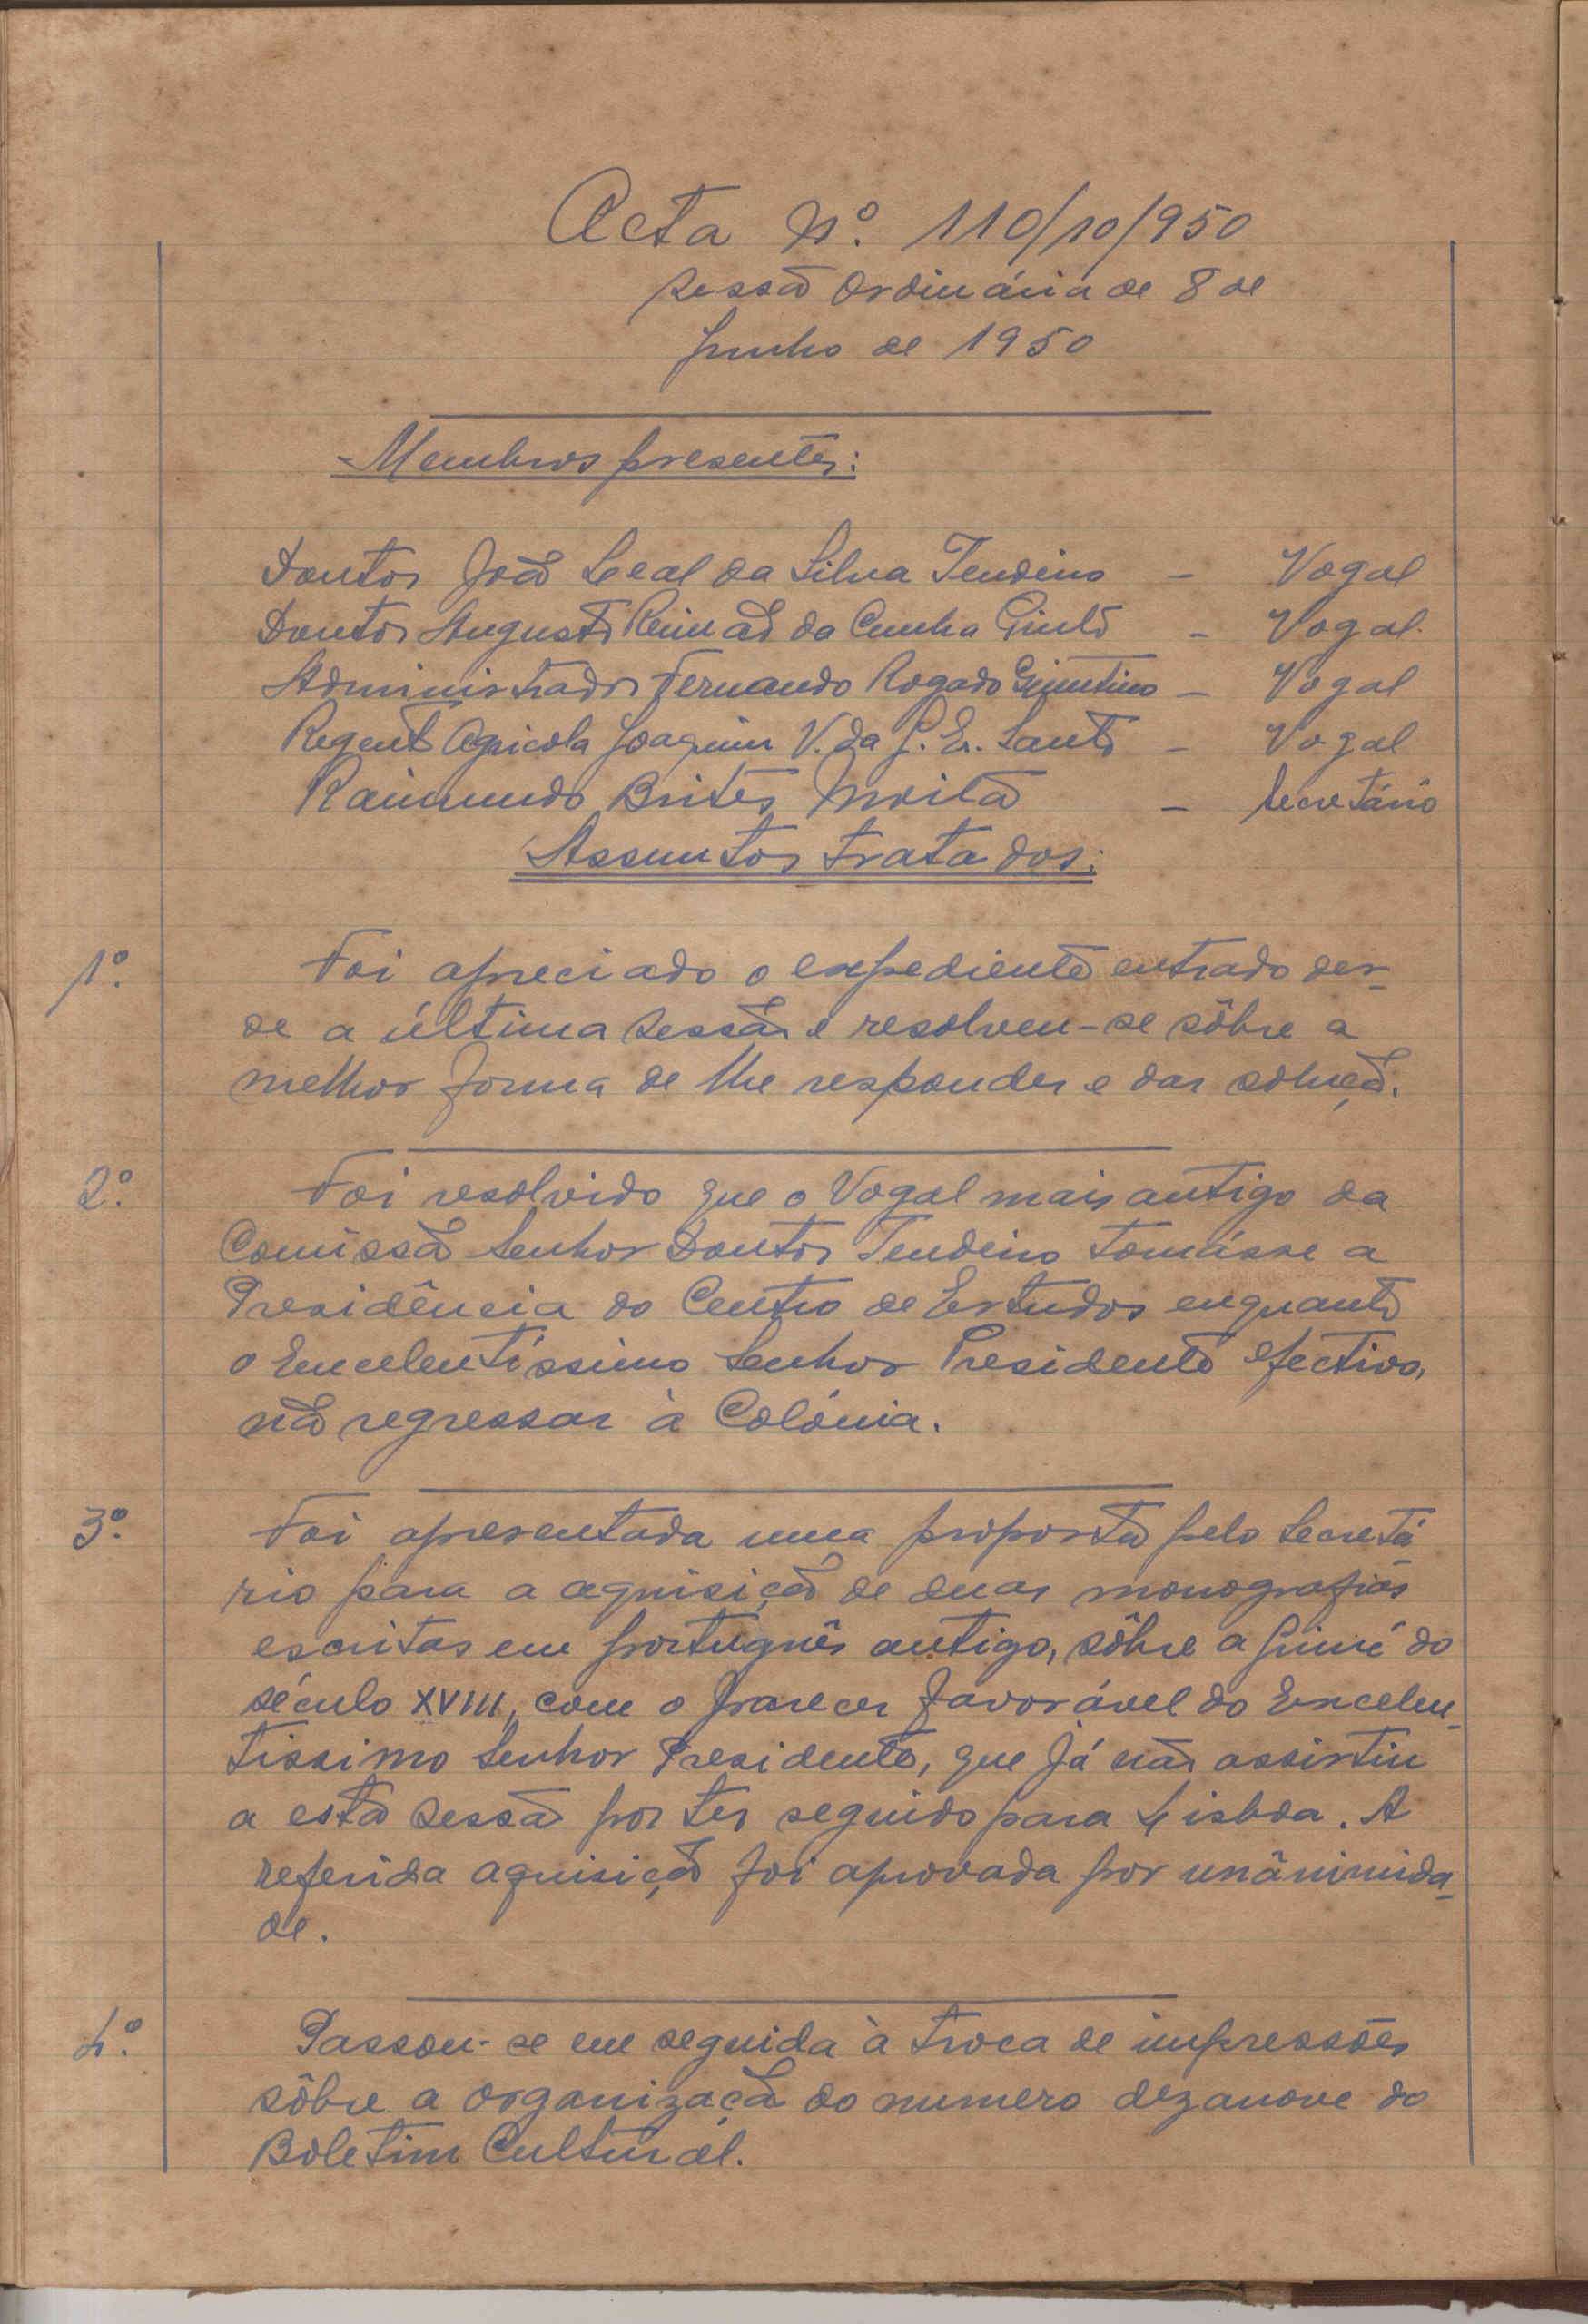 Acta Nº. 110/10/950
Sessão Ordinária de 8 de
Junho de 1950
Membros presentes:
Doutor João Leal da Silva Tendeiro - Vogal
Doutor Augusto Reimão da Cunha Pinto - Vogal.
Administrador Fernando Rogado Quintino - Vogal
Regente Agrícola Joaquim V. da G. Es. Santo - Vogal
Raimundo Brites Moita - Secretário
Assuntos tratados:
1º. Foi apreciado o expediente entrado des-
de a última sessão e resolveu-se sôbre a
melhor forma de lhe responder e dar solução.
2º. Foi resolvido que o Vogal mais antigo da
Comissão Senhor Doutor Tendeiro tomásse a
Presidência do Centro de Estudos enquanto
o Excelentíssimo Senhor Presidente efectivo,
não regressar à Colónia.
3º. Foi apresentada uma proposta pelo Secretá
rio para a aquisição de duas monografias
escritas em português antigo, sôbre a Guiné do
século XVIII, com o parecer favorável do Excelen-
tissimo Senhor Presidente, que já não assistiu
a esta sessão por ter seguido para Lisboa. A
referida aquisição foi aprovada por unânimida-
de.
4º. Passou-se em seguida à troca de impressões
sôbre a organização do numero dezanove do
Boletim Cultural.